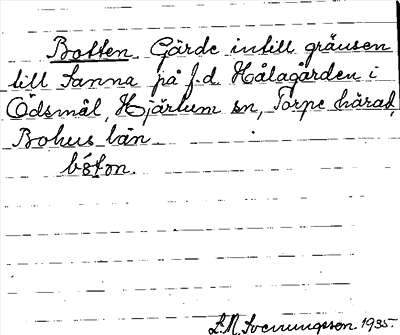 Botten. Gärde intill gränsen
till Sanna på f.d. Hålagården i
Ödsmål, Hjärtum sn, Torpe härad,
Bohus län.
bóton.
L.N. Svenungsson 1935.